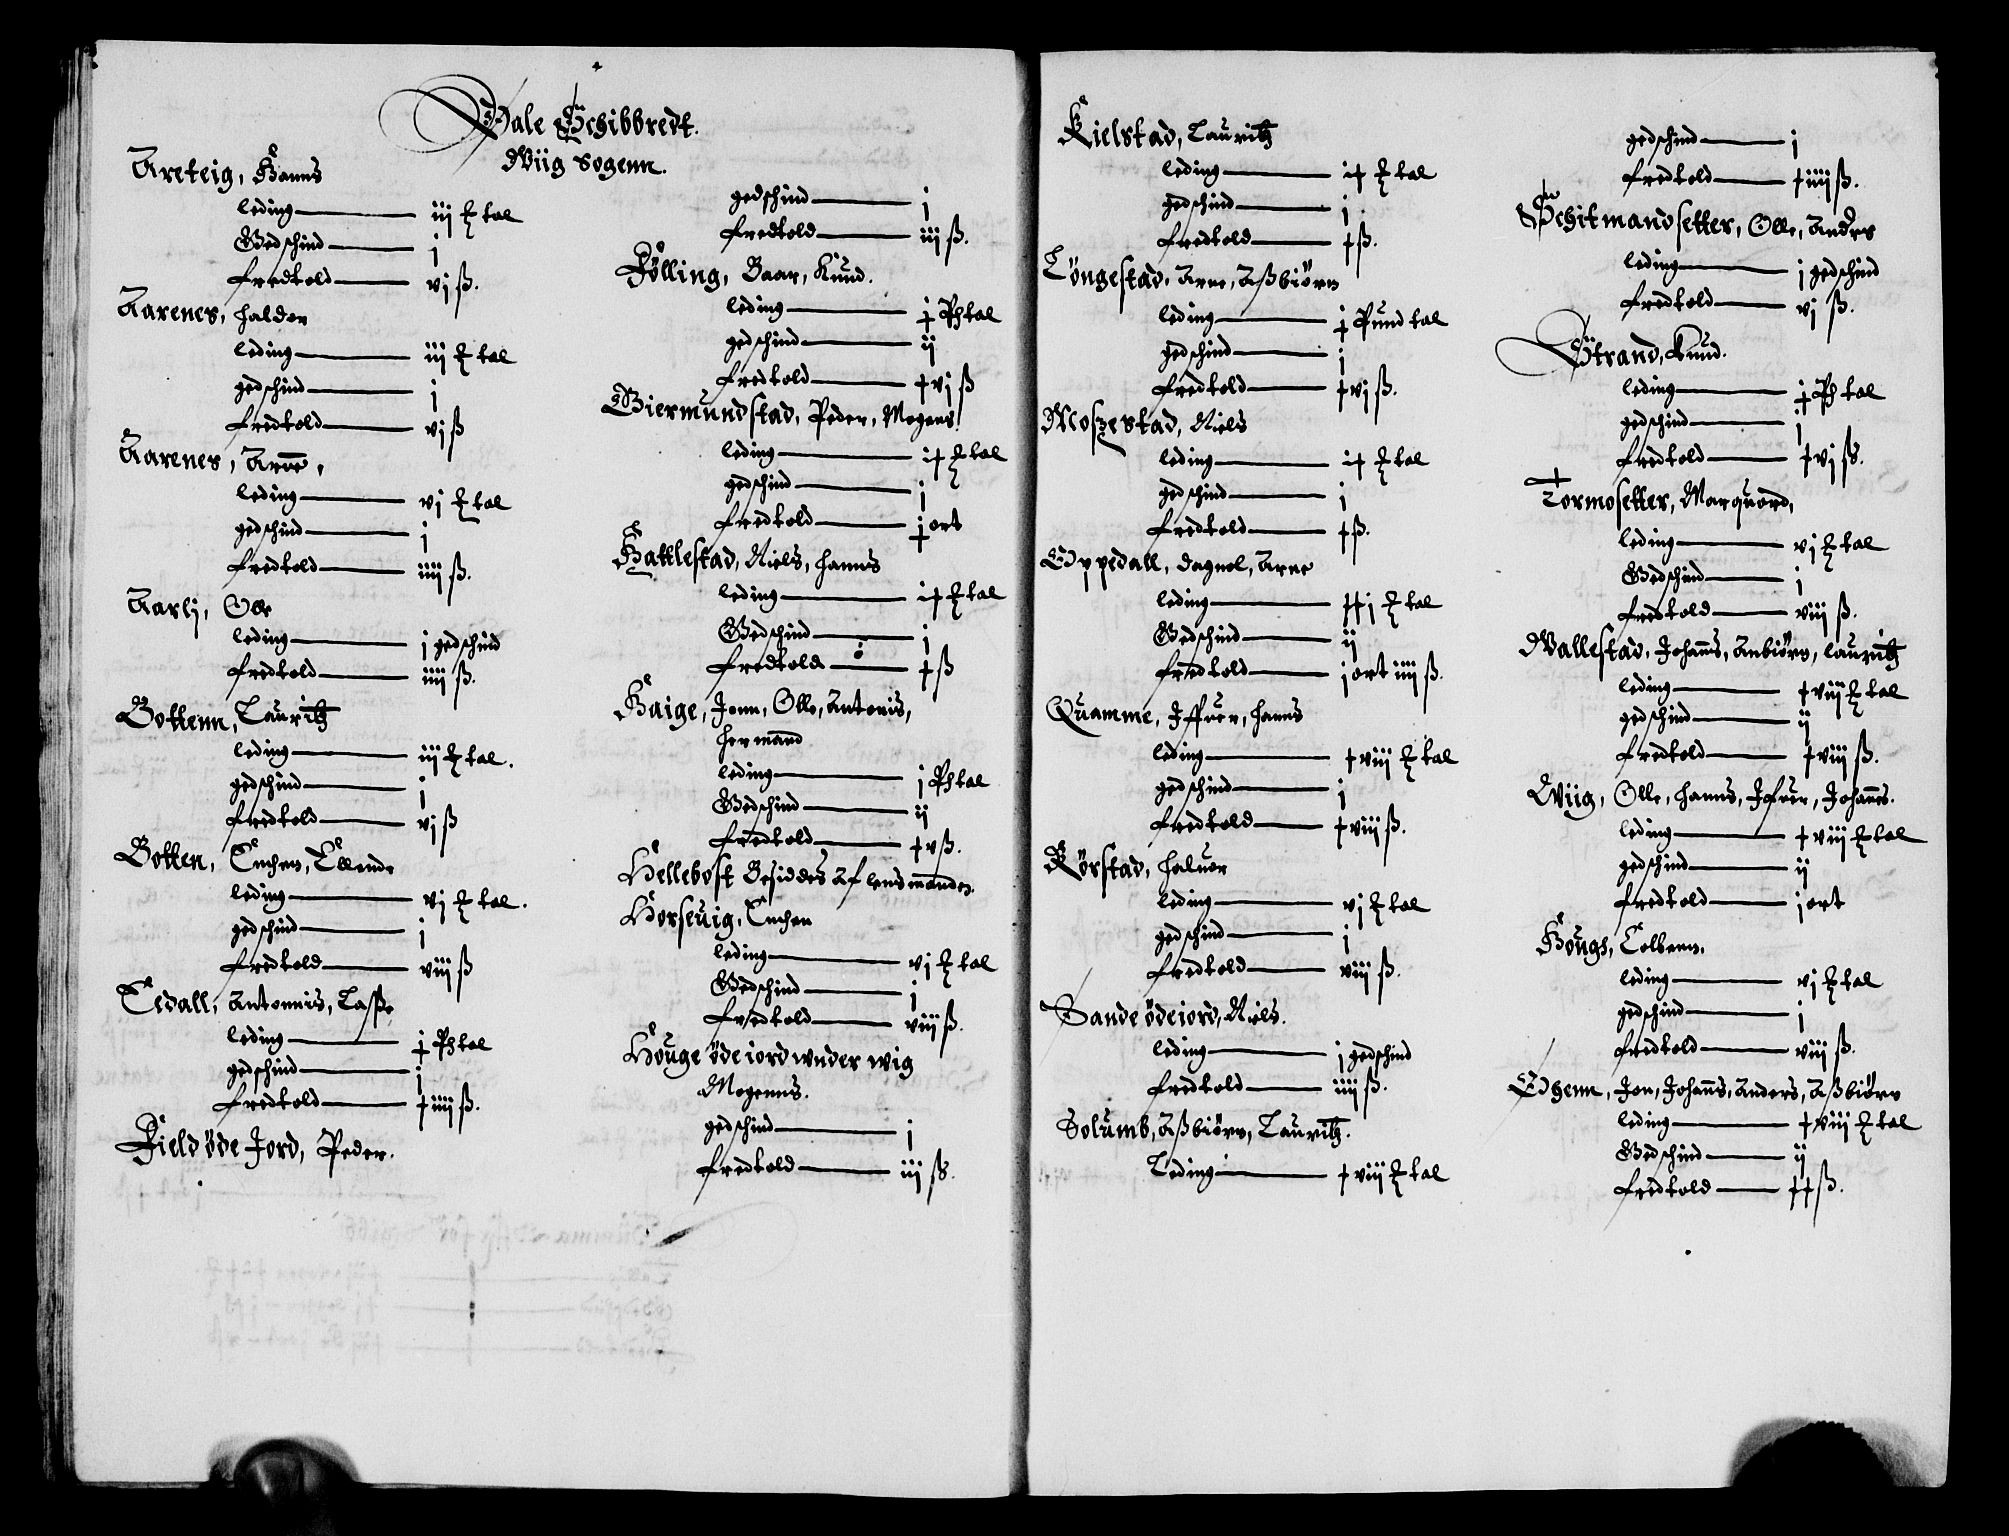 Dale Schibbredt.
Wiig Sogenn.
Areteig, Hanns
leding — iij ℔ tal
Gedschind — j
fredtold — vj ß.
Aarenes, halder
leding — iij ℔ tal
gedschind — j
fredtold — vj ß
Aarenes, Arne,
leding — vj ℔ tal
gedschind — j
fredtold — iiij ß.
Aarlj, Olle
leding — j gedschind
fredtold — iiij ß.
Bottenn, Lauritz
leding — iij ℔ tal.
gedschind — j
fredtold — vj ß
Botten, Ellende
leding — vj ℔ tal.
gedschind — j
fredtold — viij ß
Eedall, Antonnis, Lasse
leding — j Ph tal
gedschind — j
fredtold — † iiij ß.
Field öde Jord, Peder.
gedschind — j
fredtold — iij ß.
Fölling, Baar, Knud.
leding — j Ph tal
gedschind — ij
fredtold — † vj ß
Giermundstad, Peder, Mogens.
leding — i† ℔ tal
gedschind — j
fredtold — j ort
Hattlestad, Niels, hanns
leding — i† ℔ tal
Gedschind — j
fredtold — † ß
Haige, Jonn, Olle, Antonis,
hermand
leding — j Ph tal
Gedschind — ij
fredtold — † v ß.
Hellebost Besiddes Af lensmanden.
Horseuig,
leding — vj ℔ tal
Gedschind — j
fredtold — viij ß.
Houge öde iord wnder wig
Mogenns.
gedschind — j
fredtold — iij ß.
Kielstad, Lauritz
leding — i† ℔ tal
gedschind — j
fredtold — † ß.
Löngestad, Arne, Aßbiörn
leding — j Pund tal
gedschind — j
fredtold — † vj ß.
Moßestad, Niels
leding — i† ℔ tal
gedschind — j
fredtold — † ß.
Oppedall, dagnel, Arne
leding — ††j ℔ tal
Gedschind — ij
fredtold — j ort iiij ß.
Quamme, Iffuer, hanns
leding — † viij ℔ tal
gedschind — j
fredtold — † viij ß.
Rörstad, haluor
leding — vj ℔ tal
gedschind — j
fredtold — viij ß.
Sande ödeiord, Niels.
leding — j gedschind
fredtold — iiij ß.
Solumb, Aßbiörn, Lauritz.
Leding — † viij ℔ tal
gedschind — j
fredtold — † iiij ß.
Schitmandsetter, Olle, Anders
leding — j gedschind
fredtold — vj ß.
Strand, Knud.
leding — j Ph tal
gedschind — j
fredtold — † vj ß.
Tormosetter, Marquord,
leding — vj ℔ tal
Gedschind — j
fredtold — viij ß.
Wallestad, Johanns, Anbiörn, lauritz
leding — † viij ℔ tal
gedschind — ij
fredtold — † viij ß.
Wiig, Olle, hanns, Ifuer, Johannes.
leding — † viij ℔ tal
gedschind — ij
fredtold — j ort
Hougs, Colbenn.
leding — vj ℔ tal
gedschind — j
fredtold — viij ß.
Odgenn, Jon, Johanns, Anders, Aßbiörn
leding — † viij ℔ tal
Gedschind — ij
fredtold — †† ß.